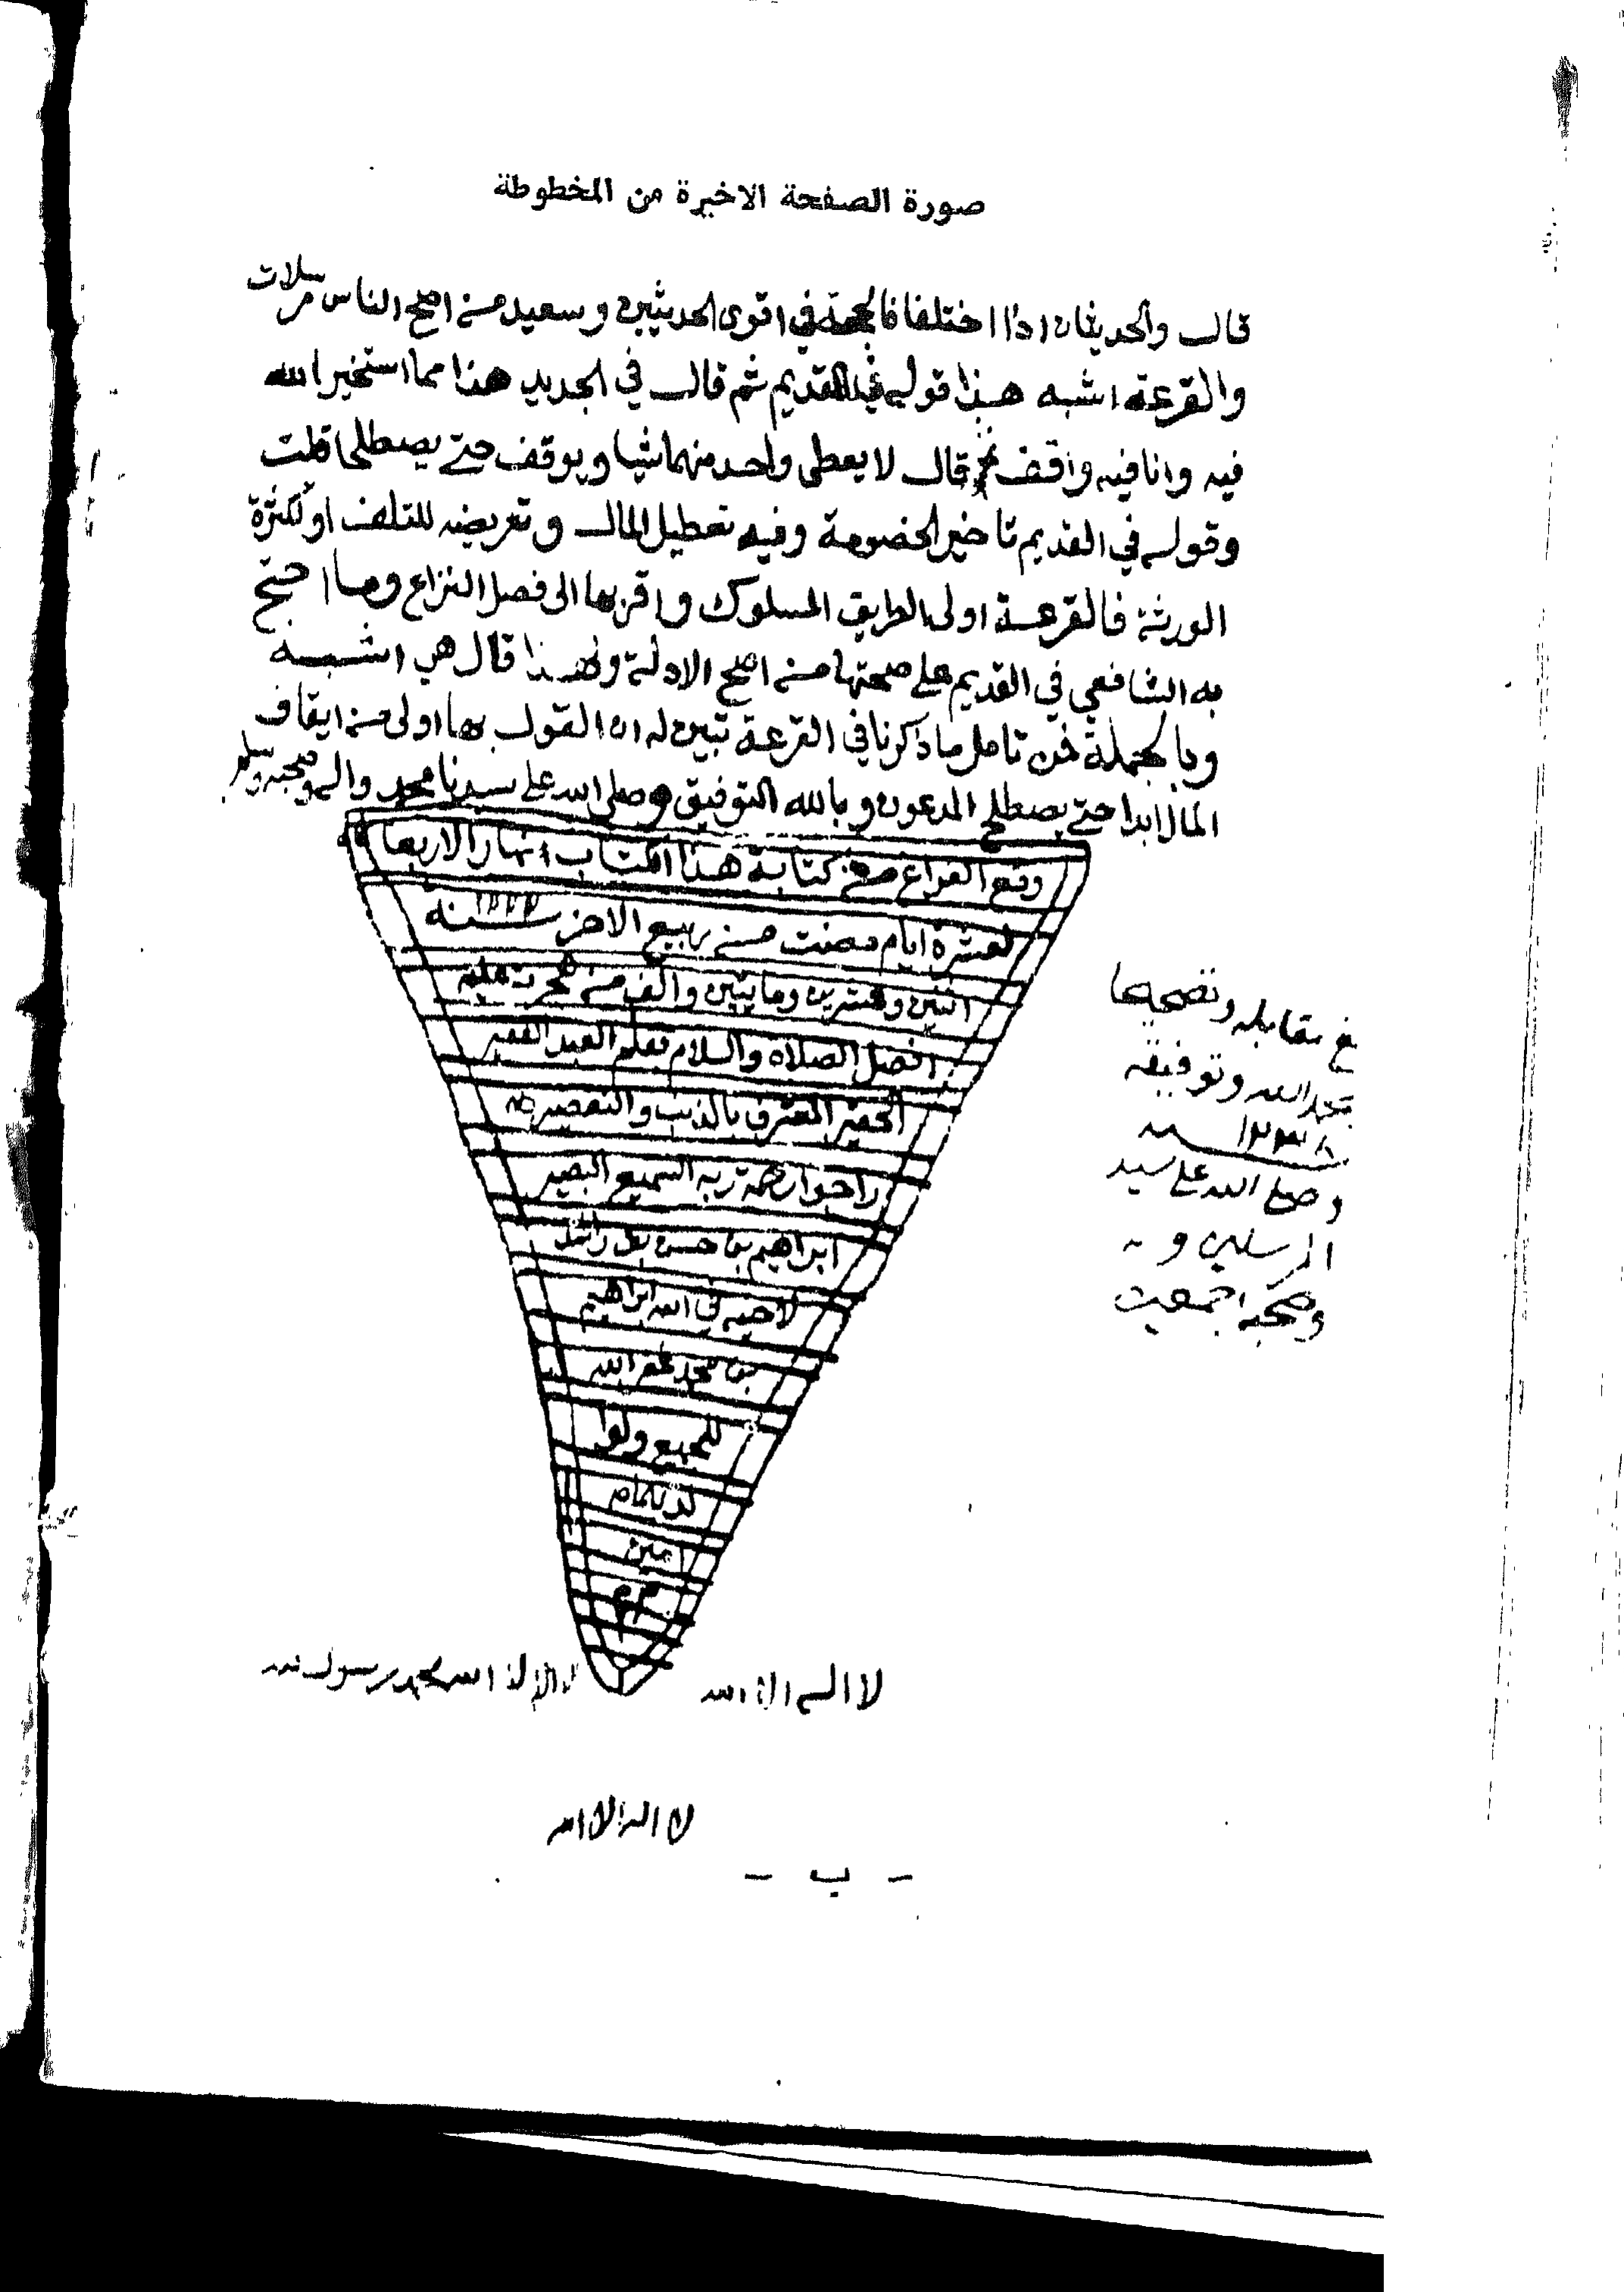 صورة الصفحة الاخيرة من المخطوطة
قال والحديثان اذا اختلفا فالحجة في اقوى الحديثين وسعيد من اصح الناس مرسلات
والقرعة اشبه هذا قوله في القديم ثم قال في الجديد هذا مما استخير الله
فيه وانا فيه واقف ثم قال لا يعطى واحد منهما شيا ويوقف حتى يصطلحا قلت
وقوله في القديم تاخير الخصومة وفيه تعطيل المال وتعريضه للتلف او لكثرة
الورثة فالقرعة اولى الطريق المسلوك واقربها الى فصل النزاع وما احتج
به الشافعي في القديم على صحتها من اصح الادلة ولهذا قال هي اشبه
وبالجملة فمن تامل ما ذكرنا في القرعة تبين له ان القول بها اولى من ايقاف
المال ابدا حتى يصطلح المدعون وبالله التوفيق وصلى الله على سيدنا محمد واله وصحبه وسلم
وقع الفراغ من كتابة هذا الكتاب نهار الاربعا
لعشرة ايام مضت من ربيع الاخر سنة ١٢٢٢
اثنين وعشرين ومايتين والف من هجرته عليه
افضل الصلاة والسلام بقلم العبد الفقير
الحقير المعترف بالذنب والتقصير
راجوا رحمة ربه السميع البصير
ابراهيم بن حسن بن راشد
لاخيه في الله ابراهيم
بن محمد غفر الله
للجميع ولوا
لديهم
امين
م م
بلغ مقابله وتصحيحا
بحمد الله وتوفيقه
١٢٣٨
وصلى الله على سيد
المرسلين و
وصحبه اجمعين
لا اله الا الله
لا اله الا الله محمد رسول الله
لا اله الا الله
- ب -